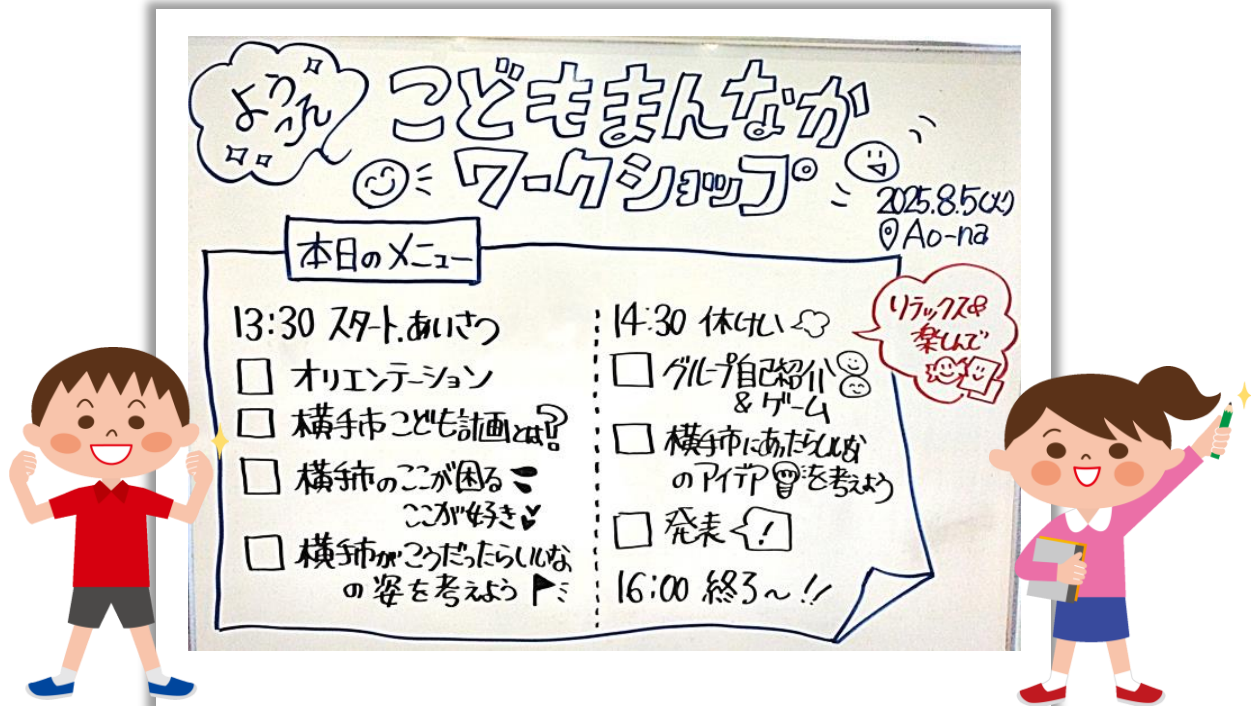 ようこそ
こどもまんなか
ワークショップ
2025.8.5(火)
Ao-na
本日のメニュー
13:30 スタート、あいさつ
オリエンテーション
横手市こども計画とは!?
横手市のここが困る
ここが好き
横手市がこうだったらいいな
の姿を考えよう
14:30 休けい
グループ自己紹介
& ゲーム
横手市にあったらいいな
のアイデアを考えよう
発表 !
16:00 終了〜!!
リラックス&
楽しんで